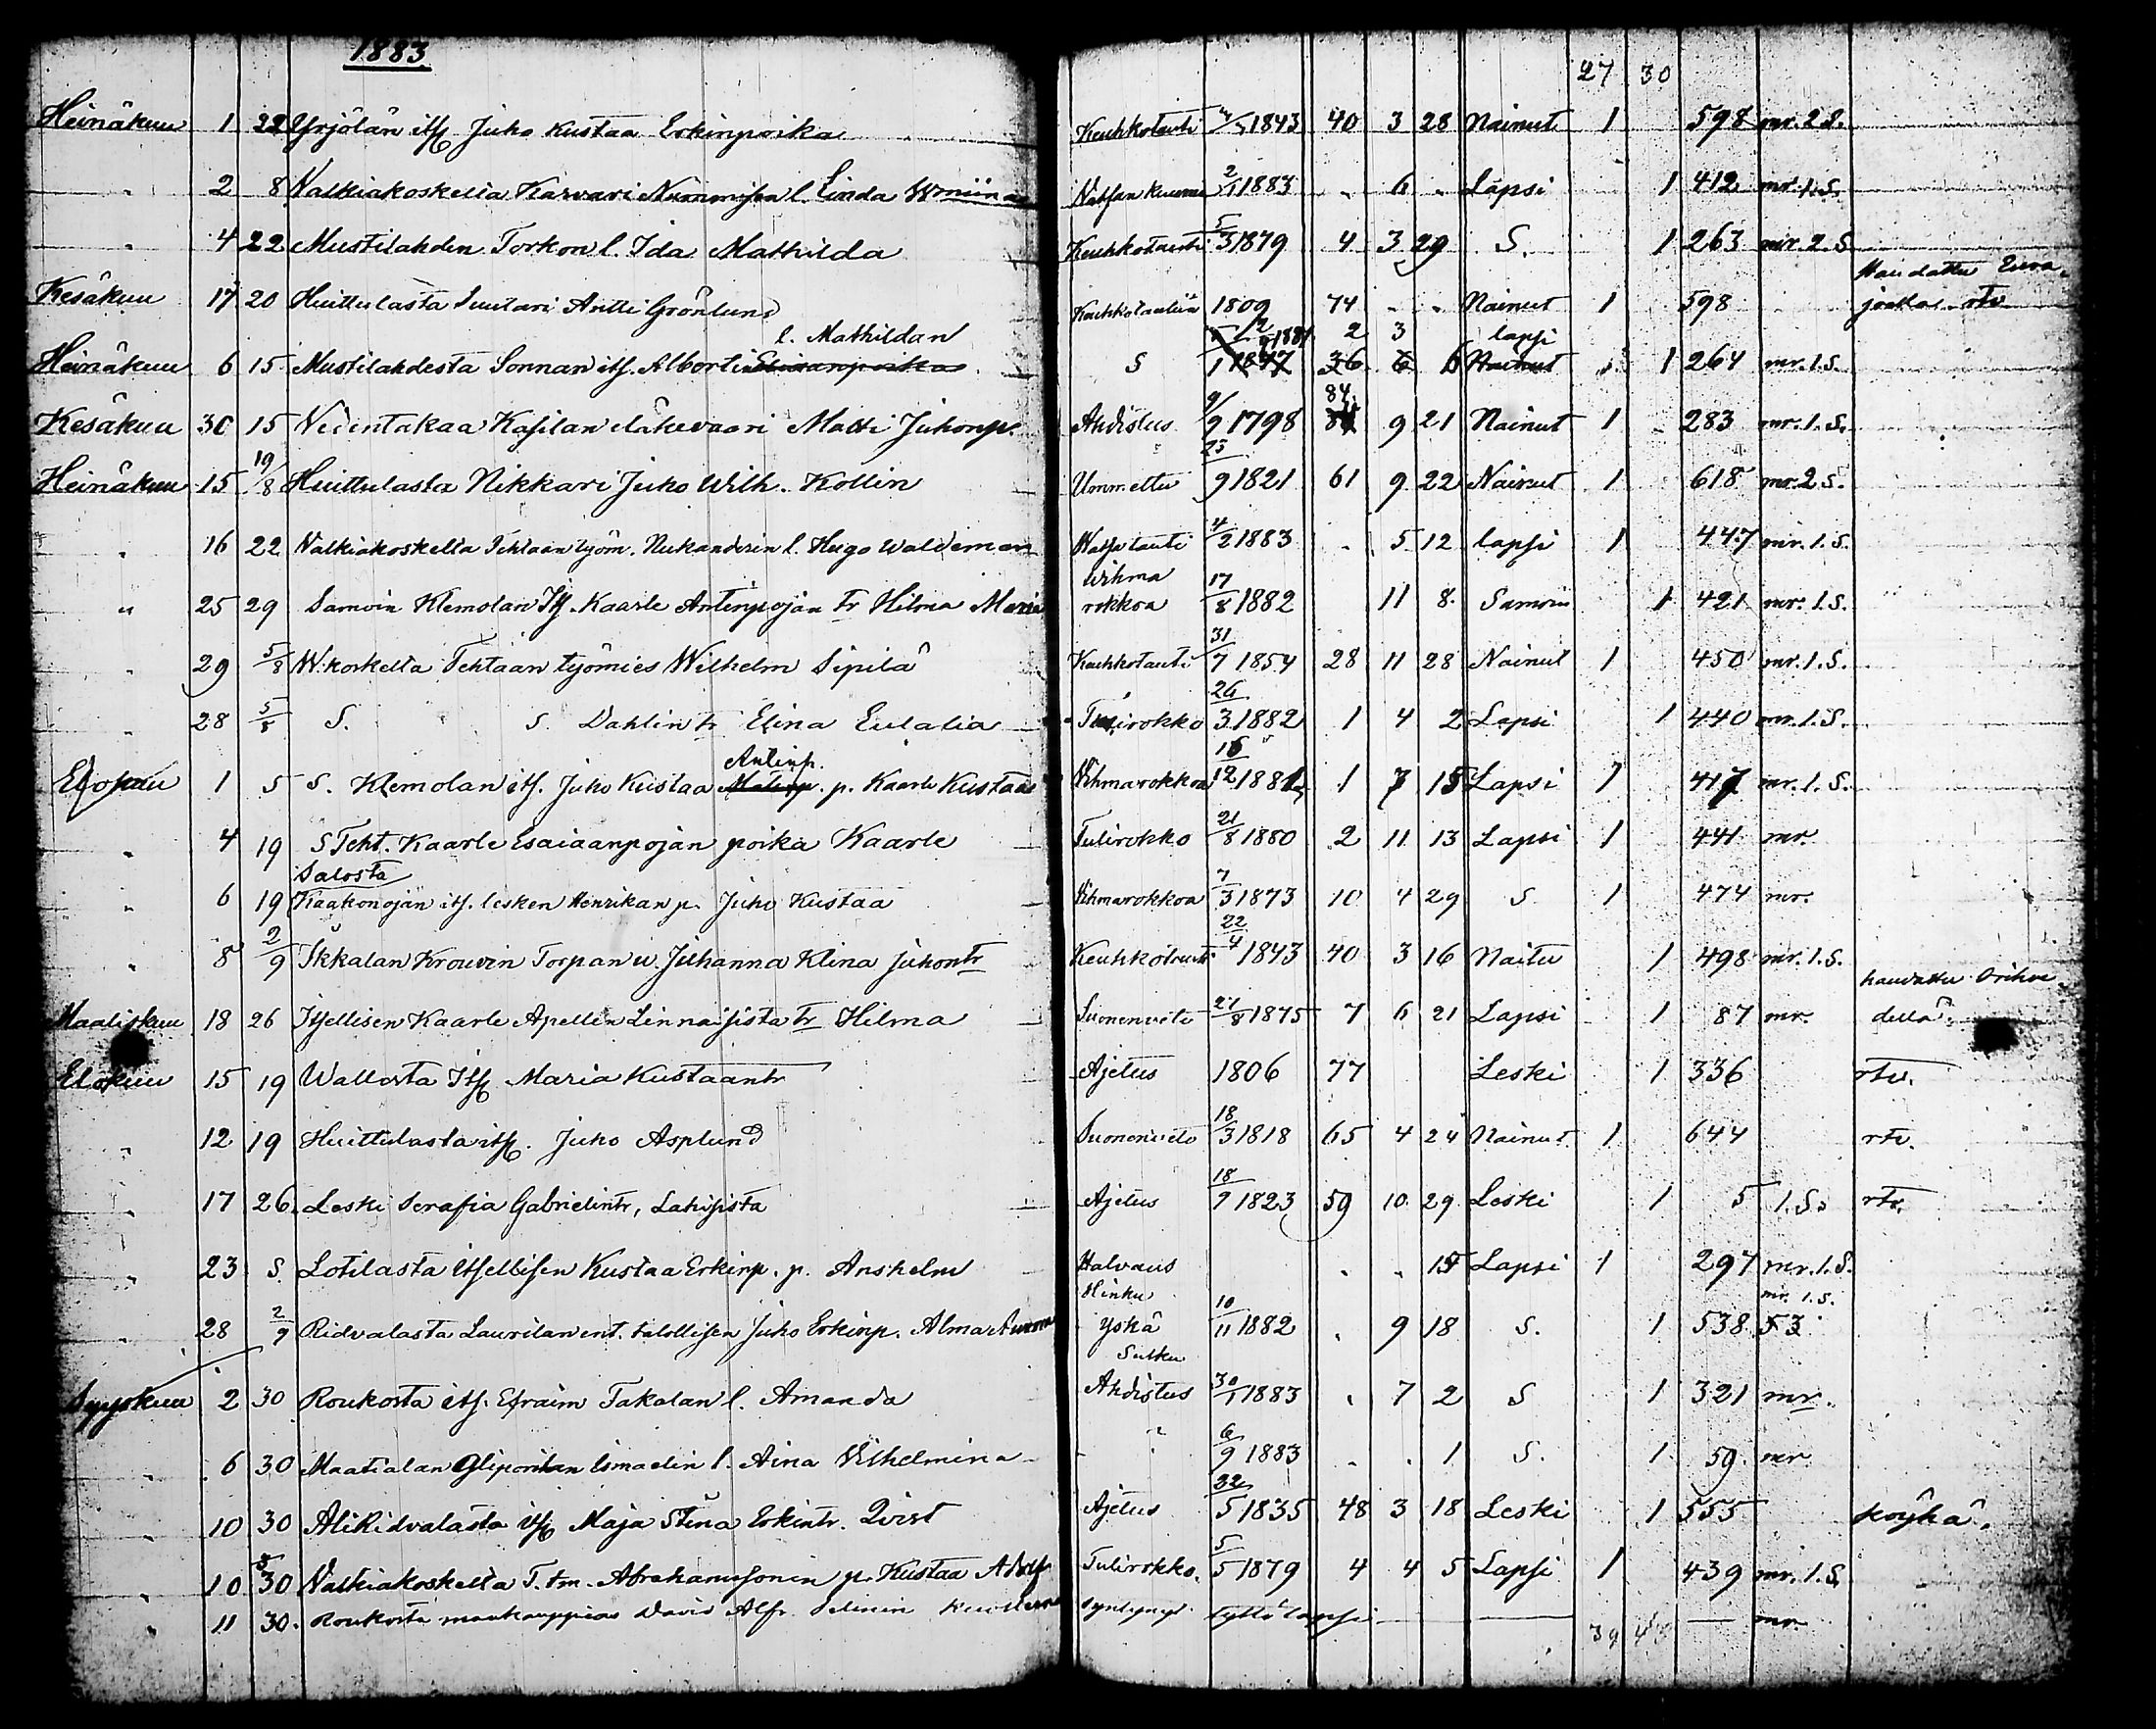 1883
27 30
Heinäkuu 1 22 Yrjölän its. Juho Kustaa Erkinpoika Keuhkotauti 1843 40 3 28 Nainut 1 598 mr. 2 S.
" 2 8 Walkiakoskelta Karvari Nurmisen l. Linda Wmiina 2/1 1883 " 6 " Lapsi 1 412 mr. 1. S.
" 4 22 Mustilahden Torkon l. Ida Mathilda Keuhkotauti 5/3 1879 4 3 29 S. 1 263 mr. 2 S
Haudattu Eura-
Kesäkuu 17 20 Huittulasta Suutari Antti Grönlund Keuhkotautiin 1809 74 " " Nainut 1 598 joella rtv
l. Mathildan 1881 2 3 lapsi
Heinäkuu 6 15 Mustilahdesta Sonnan its. Albertin Eliaanpoika S 1847 36 6 6 Nainut 1 264 mr. 1. S.
84
Kesäkuu 30 15 Wedentakaa Kasilan eläkevaari Matti Juhonp. Ahdistus 9/9 1798 84 9 21 Nainut 1 283 mr. 1. S.
Heinäkuu 15 19/8 Huittulasta Nikkari Juho Wilh. Kollin Ummettu 23/9 1821 61 9 22 Nainut 1 618 mr. 2 S.
" 16 22 Walkiakoskelta Tehtaan työm. Nukanderin l. Hugo Waldemar Watsatauti 4/2 1883 " 5 12 lapsi 1 447 mr. 1. S.
Wihma
" 25 29 Samoin Klemolan Its. Kaarle Antinpojan tr Hilma Maria rokkoa 17/8 1882 11 8 Samoin 1 421 mr. 1. S.
" 29 5/8 W:koskelta Tehtaan työmies Wilhelm Sipilä Keuhkotauti 31/7 1854 28 11 28 Nainut 1 450 mr. 1. S.
" 28 5/8 S. S. Dahlin tr Elina Eulalia Tulirokko 26/3 1882 1 4 2 Lapsi 1 440 mr. 1. S.
Antinp.
Elokuu 1 5 S. Klemolan its. Juho Kustaa Matinp. p. Kaarle Kustaa Vihmarokkoa 16/12 1881 1 7 15 Lapsi 1 417 mr. 1. S.
" 4 19 S Teht. Kaarle Esaiaanpojan poika Kaarle Tulirokko 21/8 1880 2 11 13 Lapsi 1 441 mr.
Salosta
" 6 19 Kaakonojän its. lesken Henrikan p. Juho Kustaa Vihmarokkoa 7/3 1873 10 4 29 S 1 474 mr.
" 8 2/9 Ikkalan Krouvin Torpan v. Juhanna Klina Juhontr Keuhkotauti 22/4 1843 40 3 16 Naitu 1 498 mr. 1. S.
haudattu Orihve
Maaliskuu 18 26 Itsellisen Kaarle Apellin Linnaisista tr Hilma Suonenveto 27/8 1875 7 6 21 Lapsi 1 87 mr. dellä.
Elokuu 15 19 Wallosta Its. Maria Kustaantr Ajetus 1806 77 Leski 1 336 rtv.
" 12 19 Huittulasta its. Juho Asplund Suonenveto 18/3 1818 65 4 24 Nainut 1 644 rtv.
" 17 26 Leski Serafia Gabrielintr, Lahisista Ajetus 18/9 1823 59 10 29 Leski 1 5 1. S. rtv.
" 23 S. Lotilasta itsellisen Kustaa Erkinp. p. Anshelm Halvaus " " 15 Lapsi 1 297 mr. 1. S.
Hinku mr. 1. S.
" 28 2/9 Ridvalasta Laurilan ent. talollisen Juho Erkinp. Alma Aurora yskä 10/11 1882 " 9 18 S. 1 538 53
Syyskuu 2 30 Roukosta its. Efraim Takalan l. Amanda Ahdistus 30/1 1883 " 7 2 S 1 321 mr.
" 6 30 Maatialan Ismaelin l. Aina Vilhelmina " 6/9 1883 " " 1 S. 1 59 mr
" 10 30 AliRidvalasta its. Maja Stina Erkintr. Qvist Ajetus 22/5 1835 48 3 18 Leski 1 555 köyhä.
" 10 30 Walkiakoskelta T. tm. Abrahamssonin p. Kustaa Adolf Tulirokko. 5/5 1879 4 4 5 Lapsi 1 439 mr. 1. S.
" 11 30. Roukosta maakauppias David Alfr. Kuolleena syntynyt tyttölapsi — — — mr.
39 43